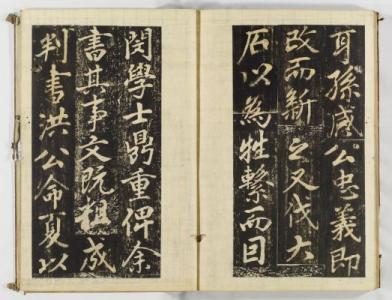 耳孫感公忠義即
改而新之又伐大
石以為牲繫而目
閔學士鼎重俾余
書其事文既粗成
判書洪公命夏以